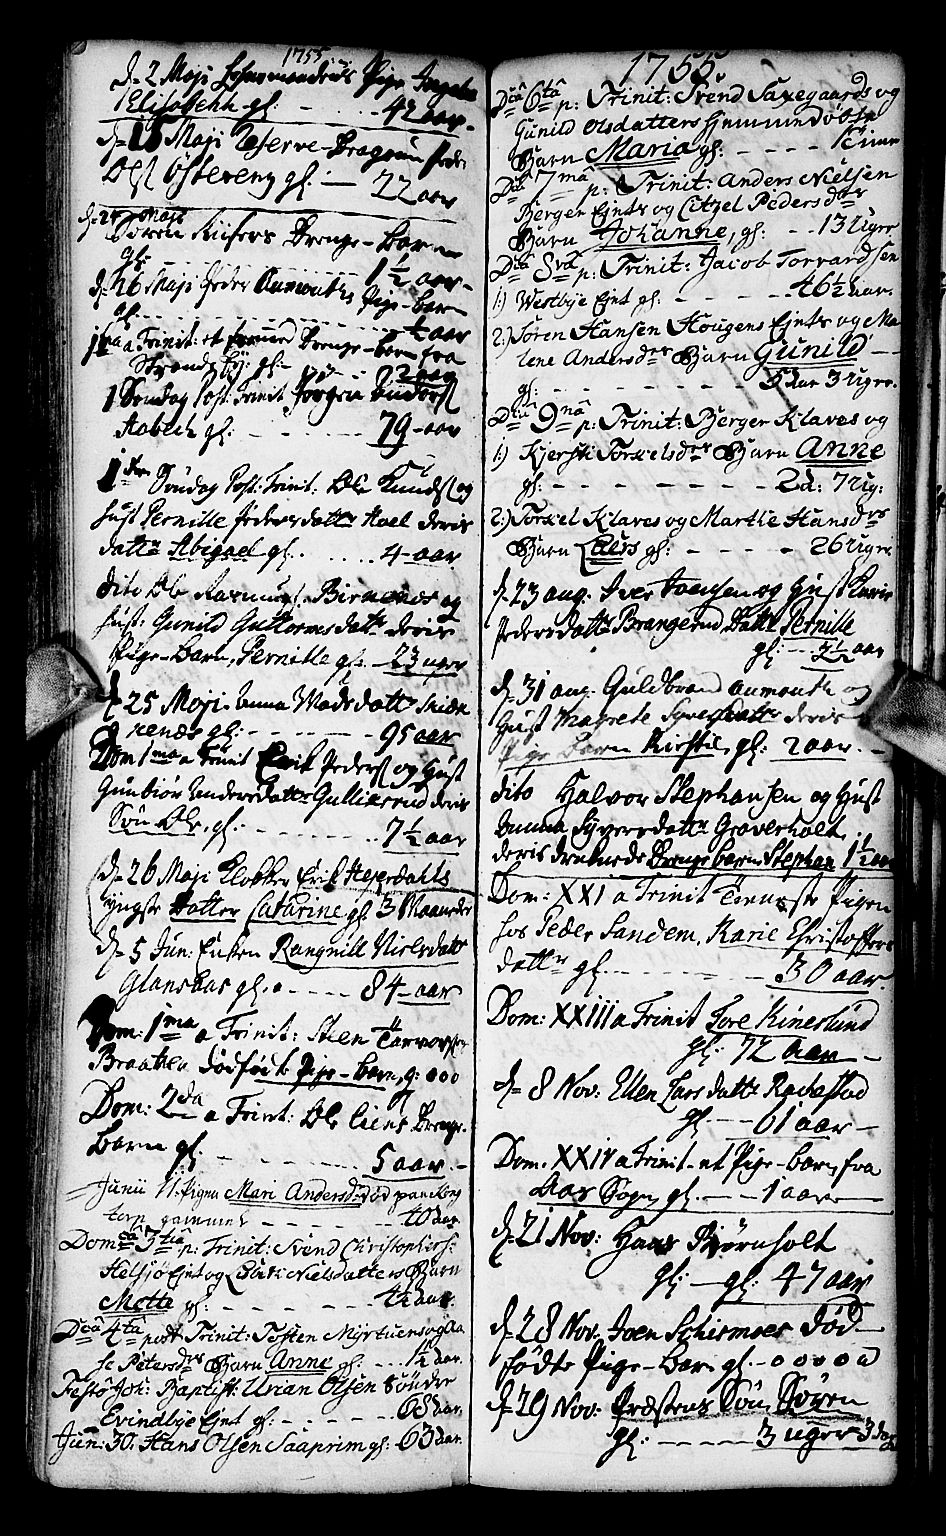 1755
d= 2 Maji Pige
Elisabeth gl: - - 42 aar.
d= 15 Maji Peder
Ols Østereng gl: — 22 aar
d= 25 Maji
Søren Drenge-barn
gl: - - - - 1½ aar-
d= 26 Maji Peder Aumouths Pige-barn
gl: - - - - aar
1ma a Trinit: et Drenge-barn fra
gl: - - 2 aar
1 Søndag post Trinit Jørgen
Aabech gl: - - - - 79-aar
1 Søndag Post: Trinit: Ole Knuds og
Hust Pernille Pedersdattr deris
dattr Abigael gl. - - 4-aar
dito Ole Rasmus. og
Hust: Gunild Guttormsdattr deris
Pige-Barn, Pernille gl. 23 uger
d= 25 Maji Anna Madsdattr
gl: - - - - 95 aar
Dom 1ma a Trinit Erik Peders og Hust
Gunbiør Andersdattr Gullixrud deris
Søn Ole, gl. - - - - 7½ aar
d= 26 Maji Klokker Erik Hexerdahls
Yngste Datter Catarine gl: 3 Maaneder
d= 5 Jun: Enken Rangnill Nielsdattr
Glansbas gl. - - - 84-aar
Dom: 1ma a Trinit: Sten
Braathen dødfødt Pige-barn, g: 000
Dom: 2da a Trinit: Ole Liens Drenge-
barn gl. - - - - 5 aar.-
Junii 11. Pigen Mari Andersdr død paa
torp gammel - - - - 40 aar
Domca 3tia p: Trinit: Svend Christophers:
Helsjø Ejnt og Nielsdatters Barn
Mette gl: - - - - - 4½ aar.
Dca 4ta post Trinit: Tosten og Aa
se Petersdrs Barn Anne gl: - - 1½ aar.
Festo Joh: Baptist: Urian Olsen Søndre
Evindbye Ejnt gl: - - - - 68 aar.
Jun: 30. Hans Olsen Saaprim gl: 63 aar.
1755.
Dca 6ta p: Trinit: Svend Saxegaards og
Gunild Olsdatters Hjemmedøbte
Barn Maria gl: - - - -
Dca 7ma p: Trinit: Anders Nielsen
Berger Ejnts og Citzel Pedersdrs
Barn Johanne, gl: - - 13 Ugrr
Dca 8va p: Trinit: Jacob Torvardsen
1:) Westbye Ejnt gl: - - - - - 46½ aar.
2:) Søren Hansen Hougens Ejnts og Ma
lene Andersdrs Barn Gunild -
gl: - - - - - - - 5 aar 3 ugrr.
Dca 9na p: Trinit: Berger Klaves og
1:) Kjersti Torkelsdrs Barn Anne
gl: - - - - - - - - 2 d: 7 Ug:
2:) Torkel Klaves og Marthe Hansdrs
Barn Lars gl: - - - - - 26 Ugrr.
d= 23 aug. Iver og Hust Karie
Pedersdattr Brangerud Dattr Pernille
gl: - - 3½ aar
d= 31 aug: Guldbrand Aumouth og
Hust Magrete Syversdattr deris
Pige barn Kirsti, gl: 2 aar. -
dito Halvor Stephansen og Hust
Anna Syversdattr Groverholt
deris druknede Drengebarn, Stephan 1½ aar
Dom: XXI a Trinit Tieneste Pigen
hos Peder Sandem, Karie Christoffers
dattr gl. - - - - - - 30 aar.
Dom: XXIII a Trinit Tore Kinerlund
gl: 72 aar -
d= 8 Nov: Ellen Larsdattr Rachestad
gl: - - - 61 aar -
Dom: XXIV a Trinit- et Pige-barn, fra
Aas Sogn, gl: - - 1 aar
d= 21 Nov: Hans Biørnholt
gl: — gl: 47 aar
d= 28 Nov. Joen Schismoes død
fødte Pige-bar gl - 00000
d= 29 Nov: Præstens Søn, Søren
gl: - - - - - 3 uger 3 dag